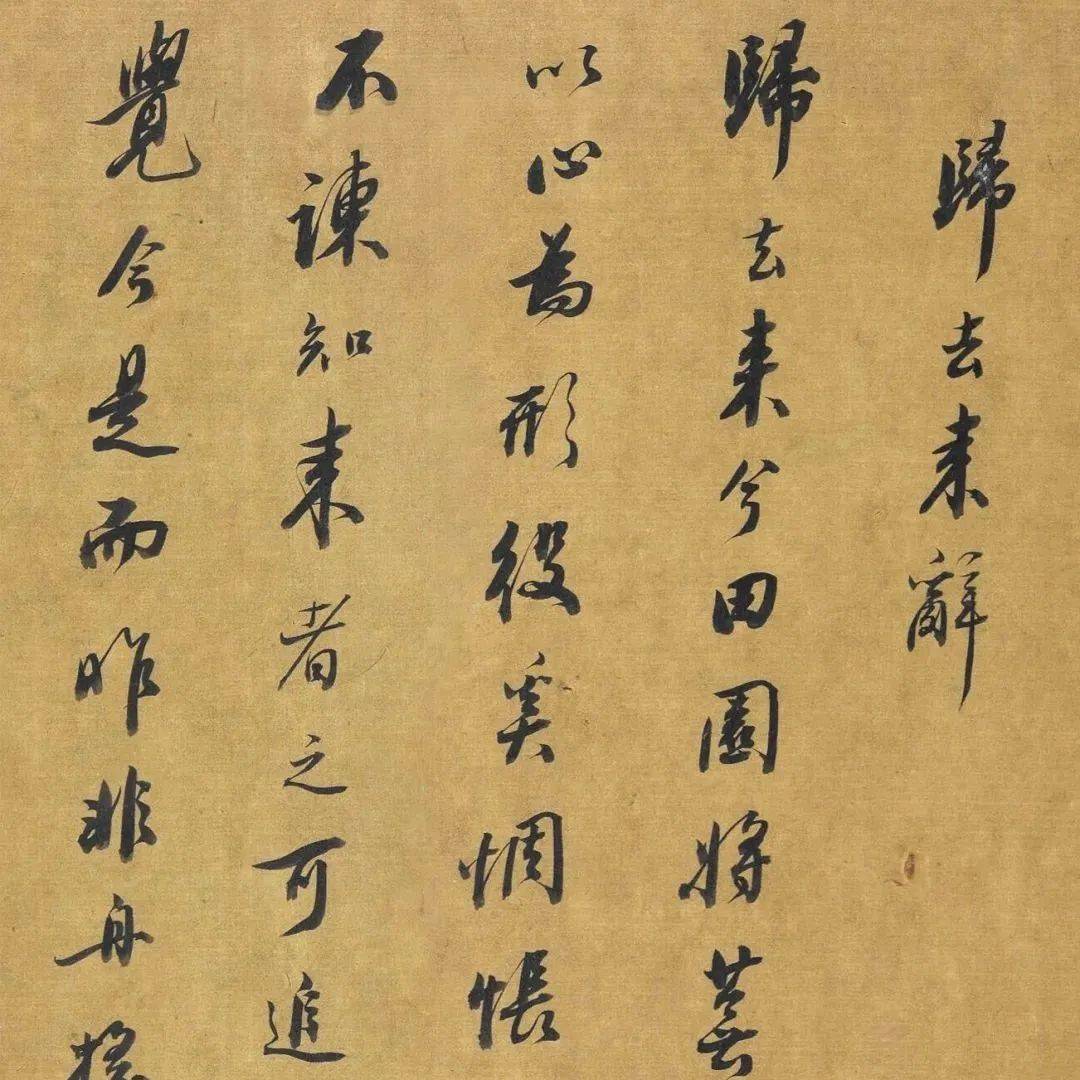 歸去来辭
歸去来兮田園將蕪
以心為形役奚惆悵
不諫知来者之可追
覺今是而昨非舟搖